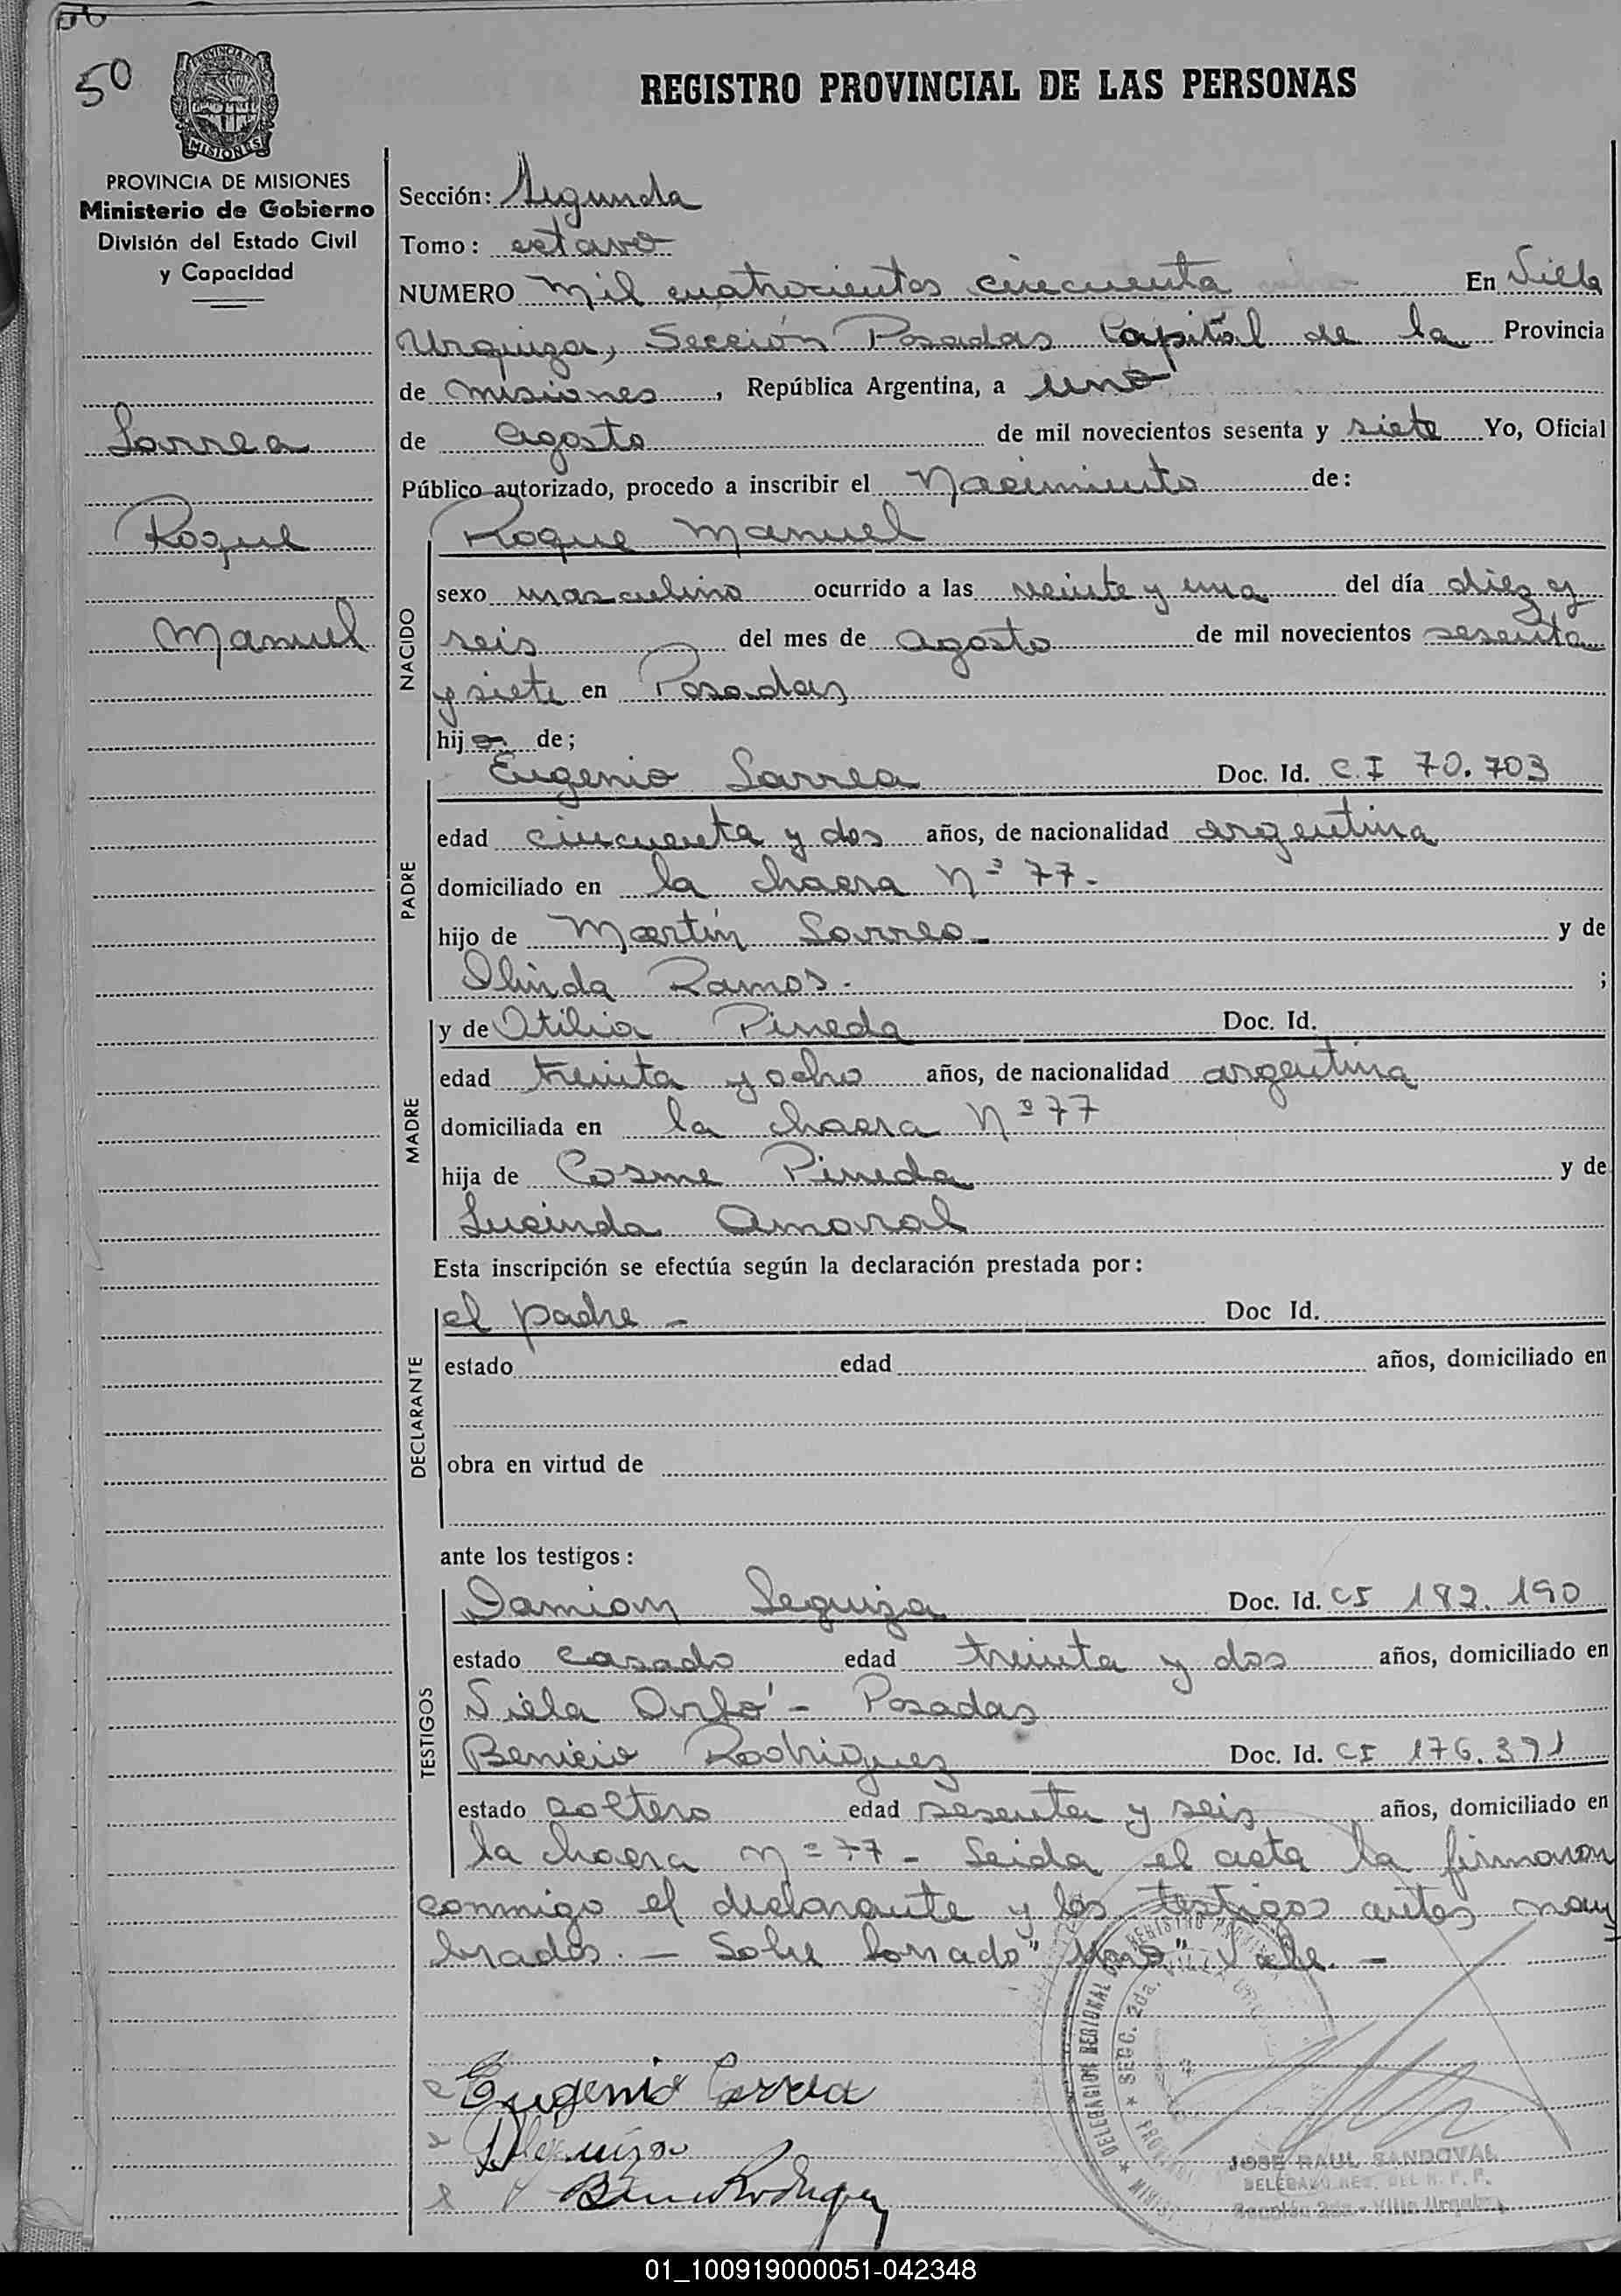 50
REGISTRO PROVINCIAL DE LAS PERSONAS
MISIONES
PROVINCIA DE MISIONES
Ministerio de Gobierno
División del Estado Civil
y Capacidad
Larrea
Roque
Manuel
Sección: Segunda
Tomo: octavo
NUMERO mil cuatrocientos cincuenta En Villa
Urquiza, Sección Posadas Capital de la Provincia
de misiones, República Argentina, a uno
de agosto de mil novecientos sesenta y siete Yo, Oficial
Público autorizado, procedo a inscribir el Nacimiento de:
NACIDO
Roque Manuel
sexo masculino ocurrido a las veinte y una del día diez y
seis del mes de agosto de mil novecientos sesenta
y siete en Posadas
hijo de;
PADRE
Eugenio Larrea Doc. Id. C.I 70.703
edad cincuenta y dos años, de nacionalidad argentina
domiciliado en la chacra Nº 77-
hijo de Martín Larrea- y de
Olinda Ramos- ;
MADRE
y de Otilia Pineda Doc. Id.
edad treinta y ocho años, de nacionalidad argentina
domiciliada en la chacra Nº 77
hija de Cosme Pineda y de
Lucinda Amaral
Esta inscripción se efectúa según la declaración prestada por:
DECLARANTE
el padre - Doc Id.
estado edad años, domiciliado en
obra en virtud de
ante los testigos:
TESTIGOS
Damian Seguiza Doc. Id. CI 182.190
estado casado edad treinta y dos años, domiciliado en
Posadas
Benicio Rodriguez Doc. Id. CI 176.391
estado soltero edad sesenta y seis años, domiciliado en
la chacra nº 77- Leida el acta la firmaron
conmigo el declarante y los testigos antes nom
brados.- Sobre borrado "uno" Vale.-
Eugenio Larrea
DELEGACION REGIONAL DEL REGISTRO
SECC. 2da. VILLA
JOSE RAUL SANDOVAL
DELEGADO REG. DEL R. P. P.
Sección 2da - Villa Urquiza
01_100919000051-042348